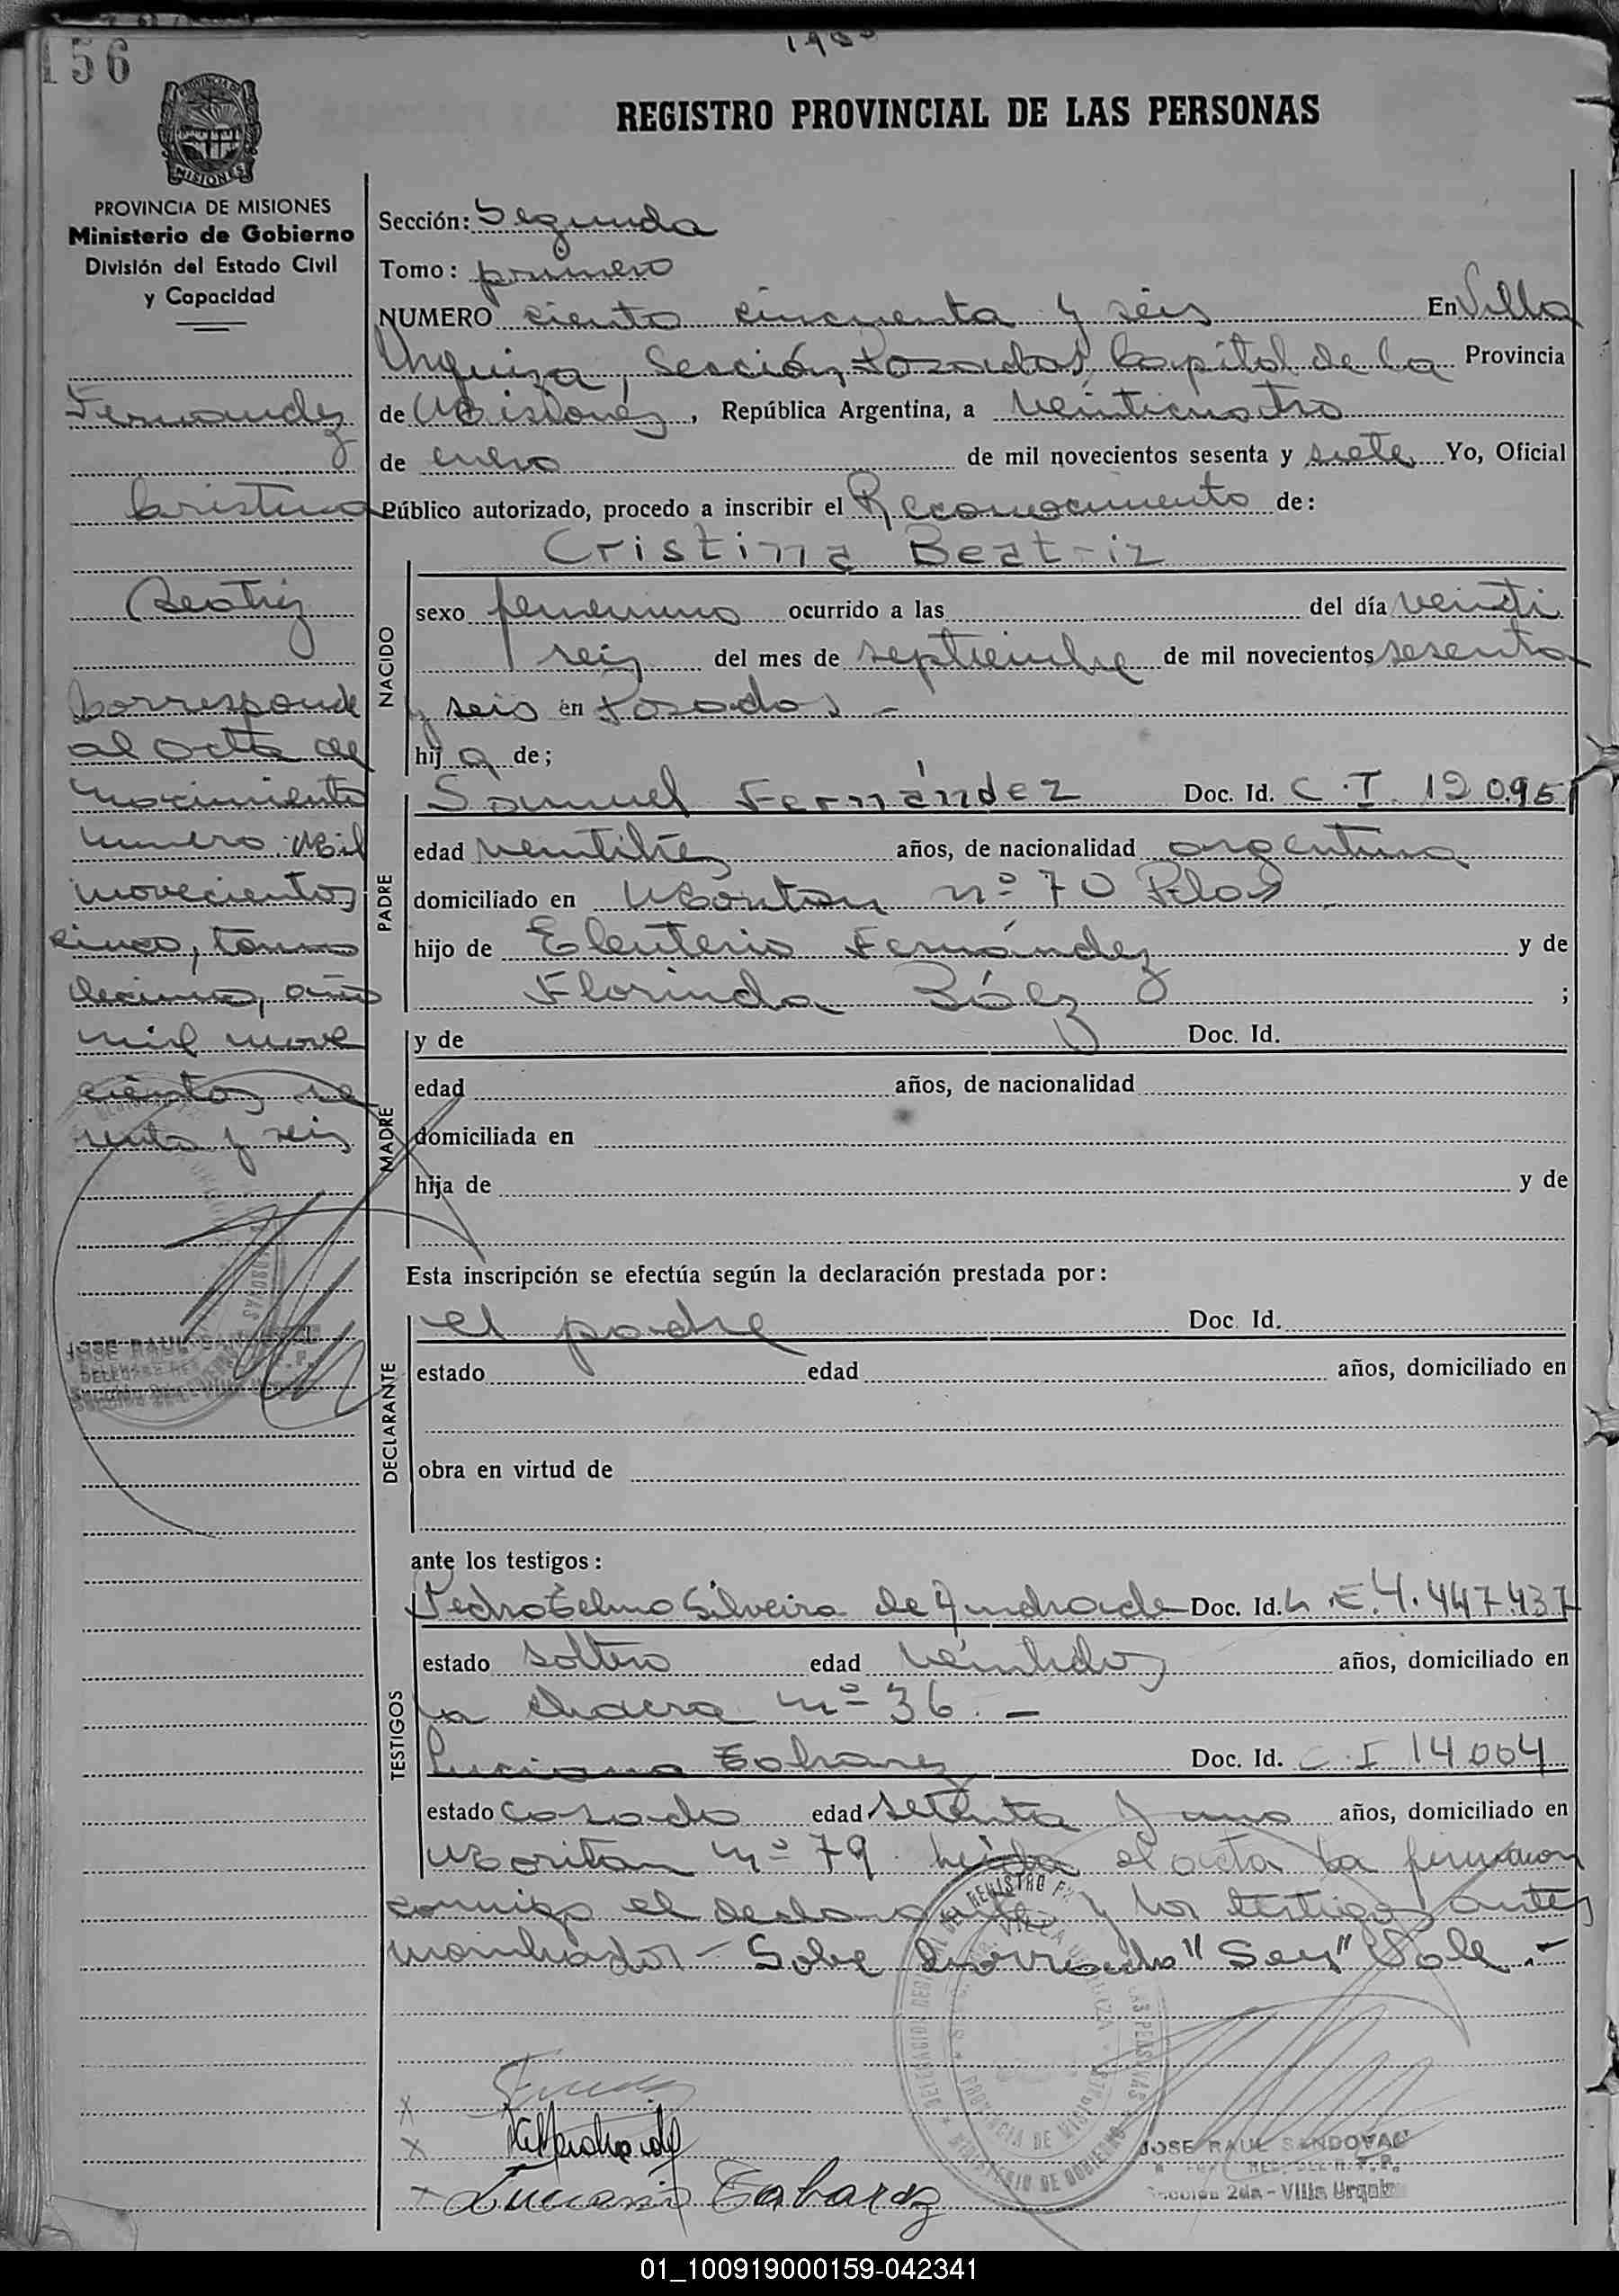 156
REGISTRO PROVINCIAL DE LAS PERSONAS
PROVINCIA DE MISIONES
Ministerio de Gobierno
División del Estado Civil
y Capacidad
Fernandez
Cristina
Beatriz
Corresponde
al acta de
nacimiento
numero Mil
novecientos
cinco, tomo
decimo, año
mil nove
cientos se
senta y seis
JOSE RAUL SANDOVAL
Sección: Segunda
Tomo: primero
NUMERO ciento cincuenta y seis En Villa
Urquiza, Sección Posadas, Capital de la Provincia
de Misiones, República Argentina, a veinticuatro
de enero de mil novecientos sesenta y siete Yo, Oficial
Público autorizado, procedo a inscribir el Reconocimiento de:
Cristina Beatriz
NACIDO
sexo femenino ocurrido a las del día veinti
seis del mes de septiembre de mil novecientos sesenta
y seis en Posadas -
hij a de;
PADRE
Samuel Fernández Doc. Id. C.I. 120.95
edad años, de nacionalidad argentina
domiciliado en nº 70 Pdas
hijo de Eleuterio Fernández y de
Florinda Báez ;
MADRE
y de Doc. Id.
edad años, de nacionalidad
domiciliada en
hija de y de
Esta inscripción se efectúa según la declaración prestada por:
DECLARANTE
el padre Doc. Id.
estado edad años, domiciliado en
obra en virtud de
ante los testigos:
TESTIGOS
Pedro Telmo Silveira de Andrade Doc. Id. L.E. 4.447.437
estado soltero edad veintidos años, domiciliado en
la chacra nº 36. -
Luciano Doc. Id. C.I 14.004
estado casado edad setenta y uno años, domiciliado en
nº 79 leida el acta la firmaron
conmigo el declarante y los testigos antes
nombrados - Sobre borrado "Seis" Vale. -
JOSE RAUL SANDOVAL
Sección 2da - Villa Urquiza
01_100919000159-042341